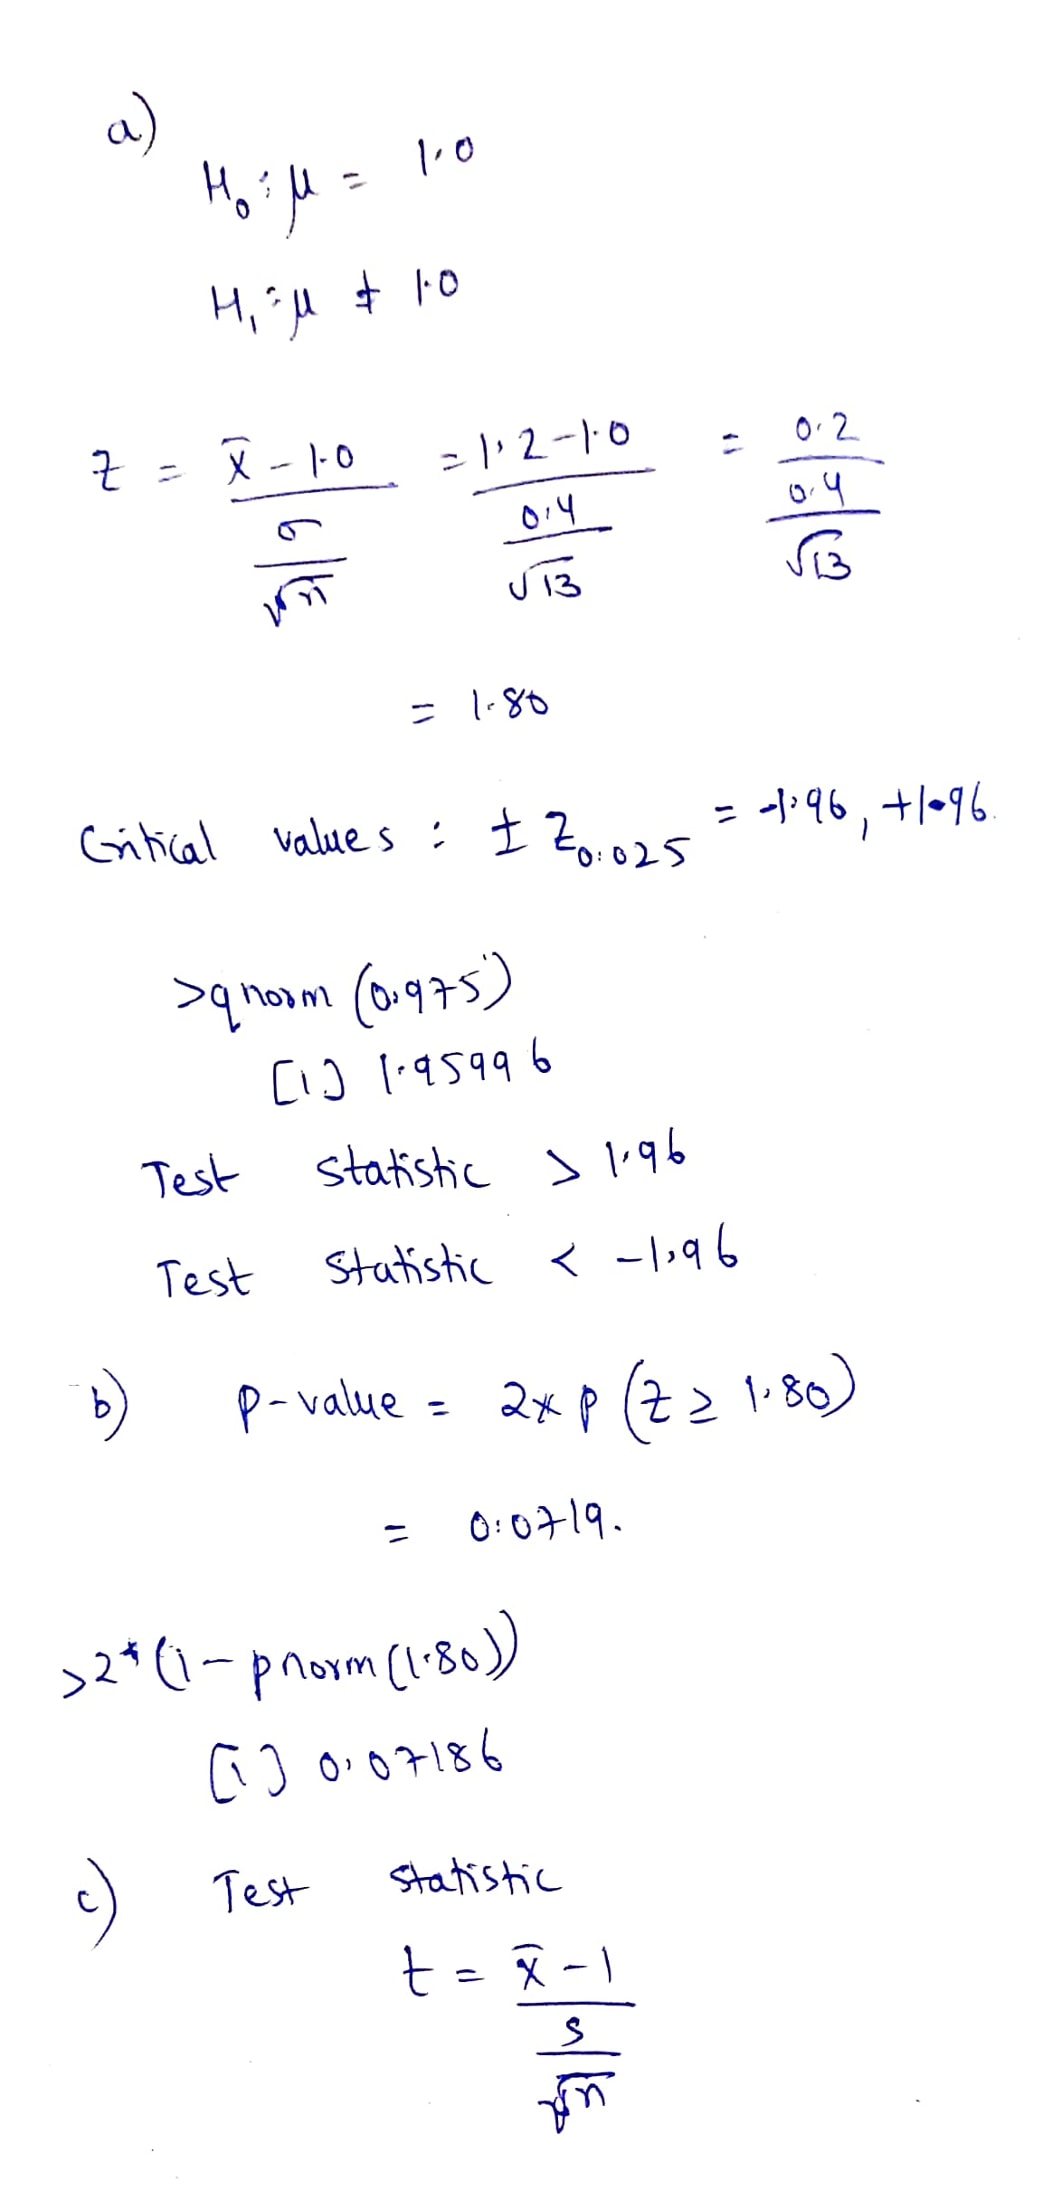 a)
H₀ : μ = 1.0
H₁ : μ ≠ 1.0
z = (x̄ - 1.0)/(σ/√n) = (1.2 - 1.0)/(0.4/√13) = 0.2/(0.4/√13)
= 1.80
Critical values : ± Z₀.₀₂₅ = -1.96, +1.96.
>qnorm (0.975)
[1] 1.95996
Test statistic > 1.96
Test statistic < -1.96
b) p-value = 2* p (Z ≥ 1.80)
= 0.0719.
>2*(1-pnorm(1.80))
[1] 0.07186
c) Test statistic
t = (x̄ - 1)/(s/√n)